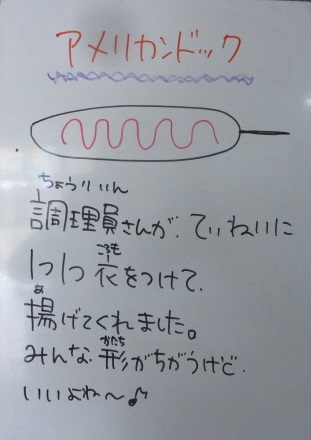 アメリカンドック
ちょうりいん
調理員さんが、ていねいに
ころも
1つ1つ衣をつけて、
あ
揚げてくれました。
かたち
みんな形がちがうけど、
いいよね〜♪